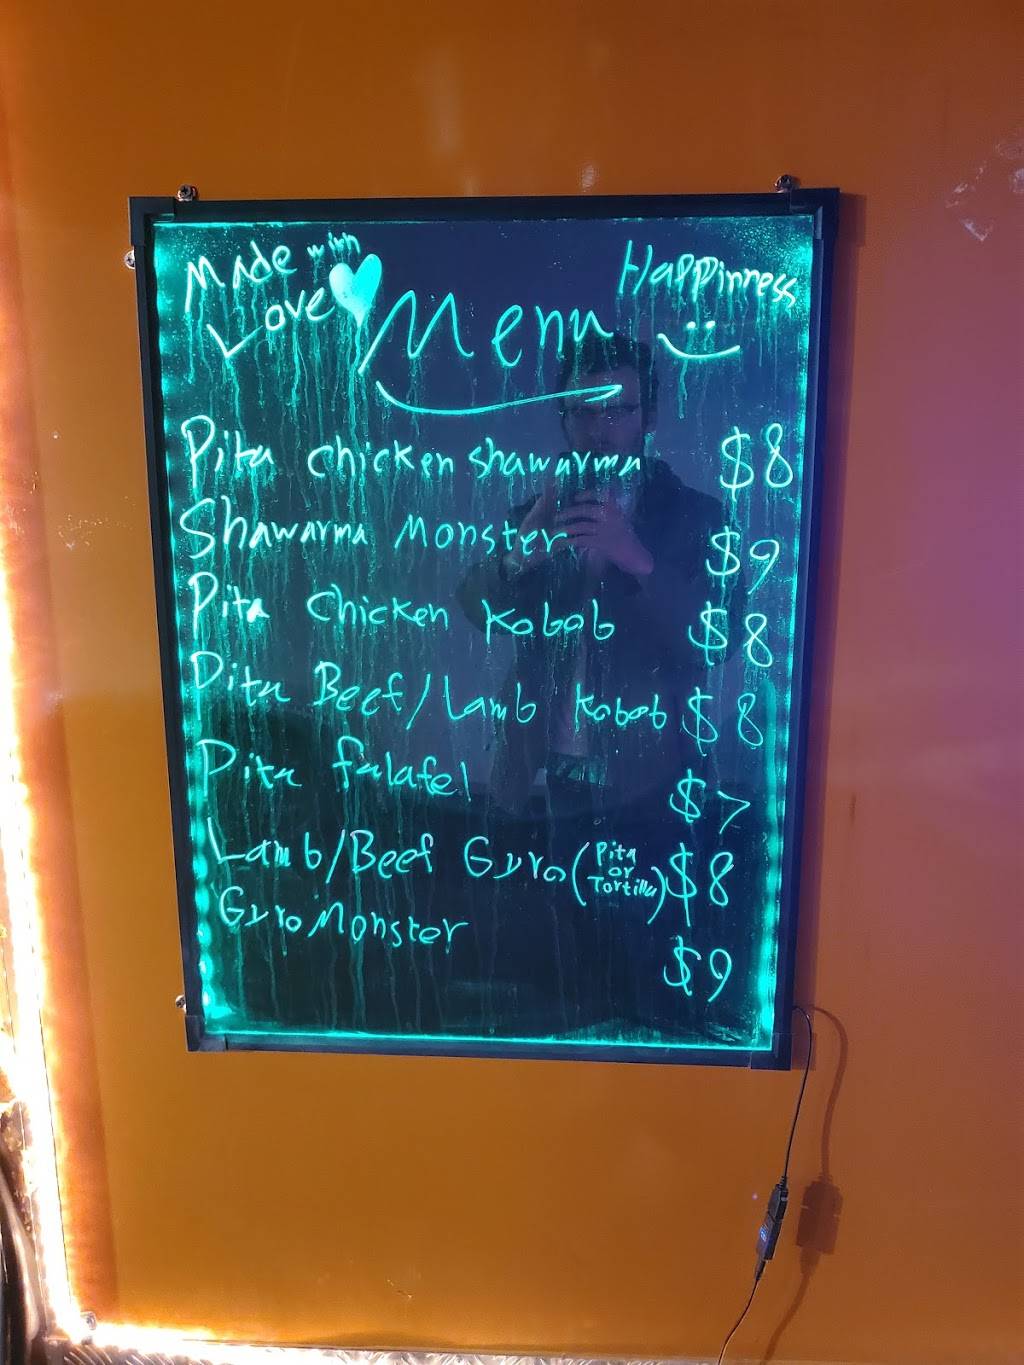 Made with
Love
Menu
Happinress
Pita chicken shawarma $8
Shawarma Monster $9
Pita Chicken Kobob $8
Pita Beef/Lamb Kobob $8
Pita falafel $7
Lamb/Beef Gyro (Pita or Tortilla) $8
Gyro Monster $9